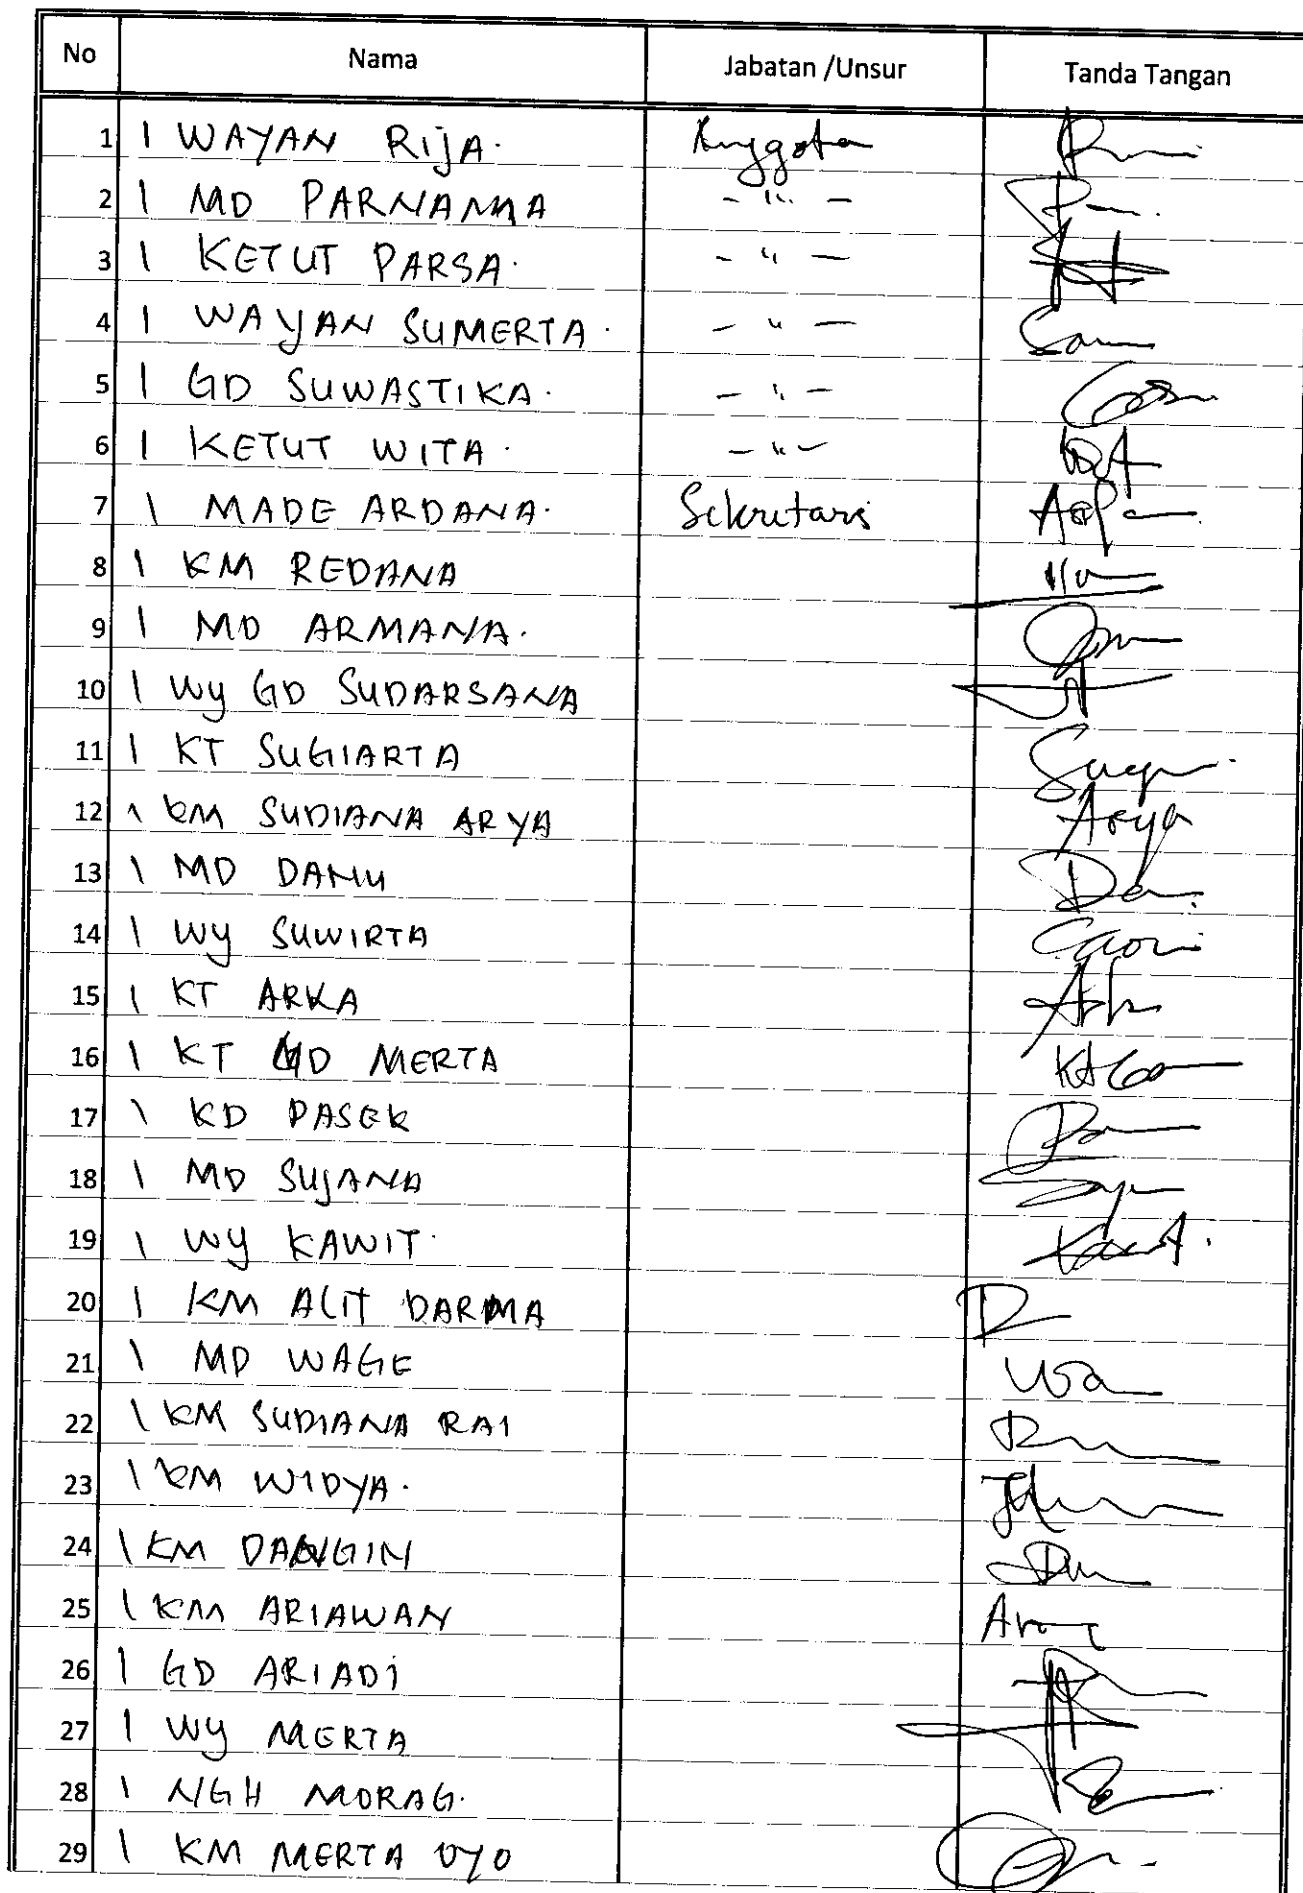 No Nama Jabatan /Unsur Tanda Tangan
1 I WAYAN RiJA. Anggota
2 I MD PARNAMA - " -
3 I KETUT PARSA. - " -
4 I WAYAN SUMERTA. - " -
5 I GD SUWASTIKA. - " -
6 I KETUT WITA. - " -
7 I MADE ARDANA. Sekretaris
8 I KM REDANA
9 I MD ARMANA.
10 I Wy GD SUDARSANA
11 I KT SUGIARTA
12 I KM SUDIANA ARYA Arya
13 I MD DANU
14 I Wy SUWIRTA
15 I KT ARKA
16 I KT GD MERTA
17 I KD PASEK
18 I MD SUJANA
19 I Wy KAWIT.
20 I KM ALIT DARMA
21 I MD WAGE
22 I KM SUDIANA RAI
23 I KM WIDYA.
24 I KM DANGIN
25 I KM ARIAWAN
26 I GD ARIADi
27 I Wy MERTA
28 I NGH MORAG.
29 I KM MERTA OYO